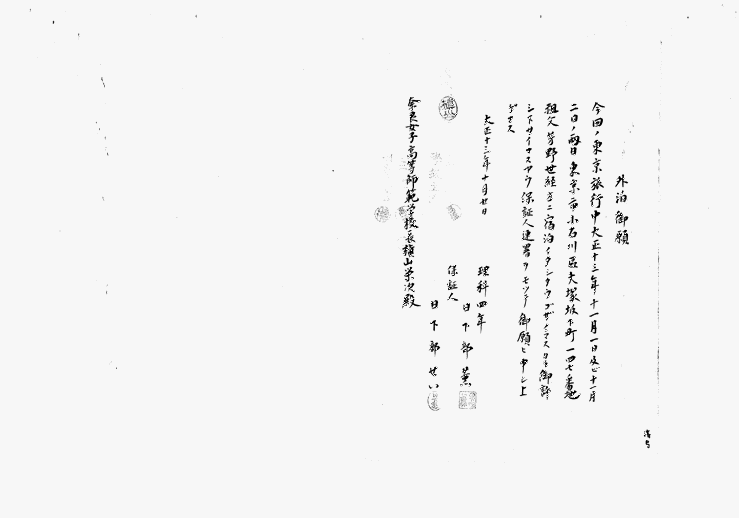 外泊御願
今回ノ東京旅行中大正十三年十一月一日及ビ十一月
二日ノ両日東京市小石川區大塚坂下町一四七番地
祖父芳野世経方ニ宿泊イタシタウゴザイマスカラ御許
シ下サイマスヤウ保証人連署ヲモッテ御願ヒ申シ上
ゲマス
大正十三年十月廿日
理科四年
日下部薫
保証人
日下部せい
奈良女子高等師範学校長槇山栄次殿